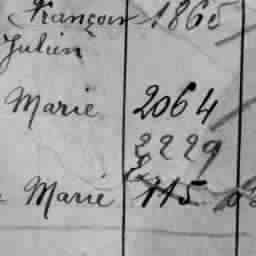 François 1865
Julien
Marie 2064
2229
Marie 115